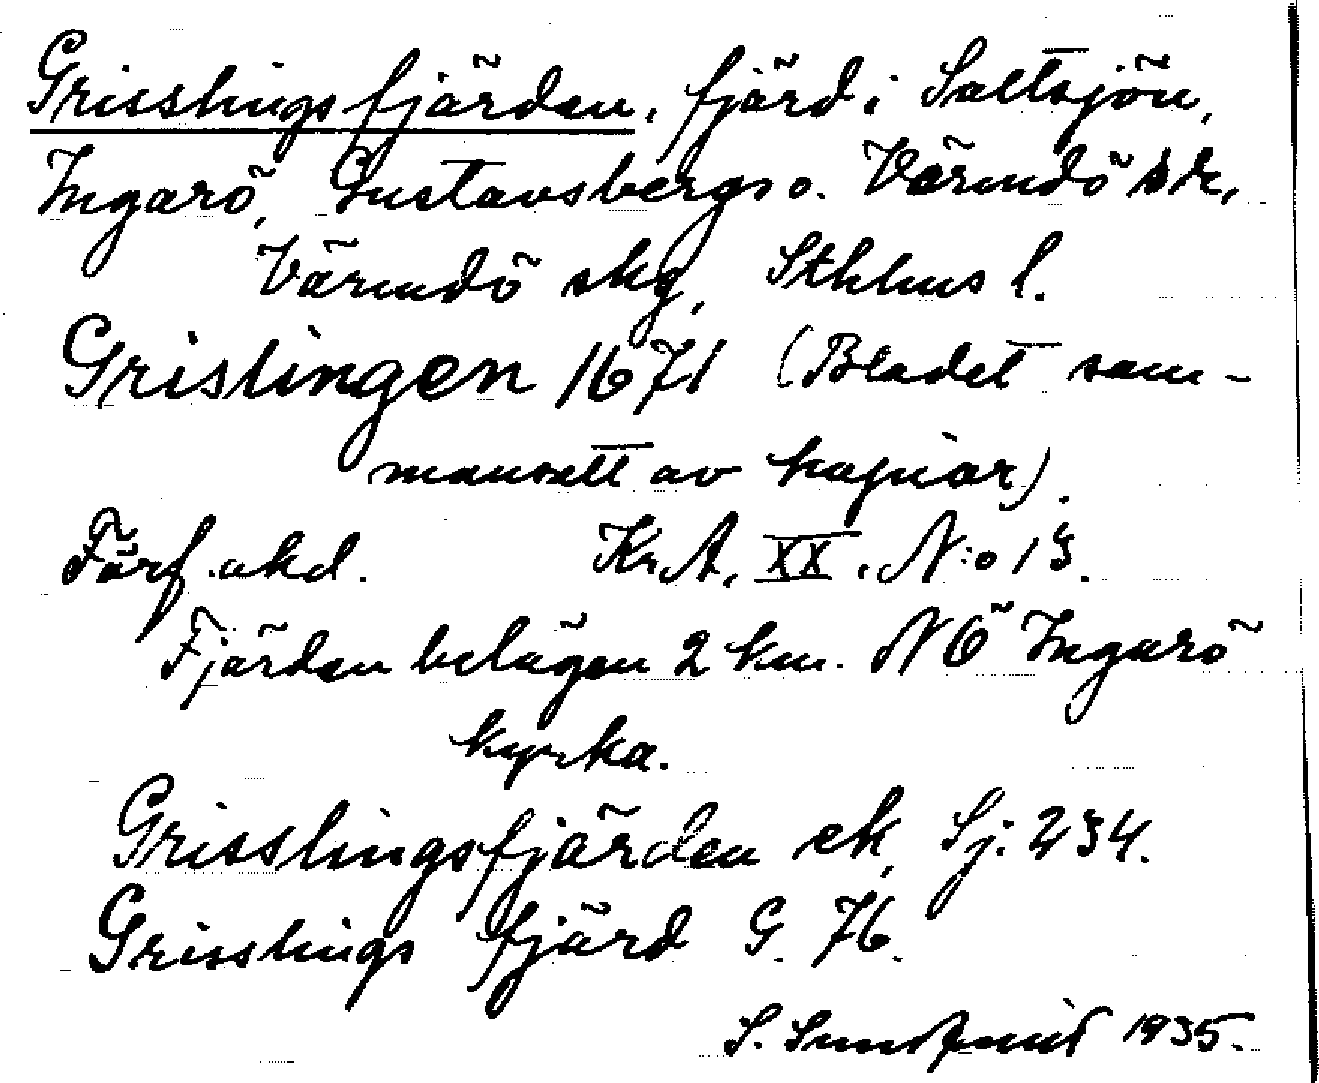 Grisslingsfjärden, fjärd i Saltsjön,
Ingarö, Gustavsbergs o. Värmdö skr,
Värmdö skg, Sthlms l.
Grislingen 1671 (Bladet sam-
mansatt av kopior).
Förf. okd. Kr.A. XX. N:o 13.
Fjärden belägen 2 km. NÖ Ingarö
kyrka.
Grisslingsfjärden ek, Sj: 234.
Grisslings fjärd G. 76.
S. 1935.